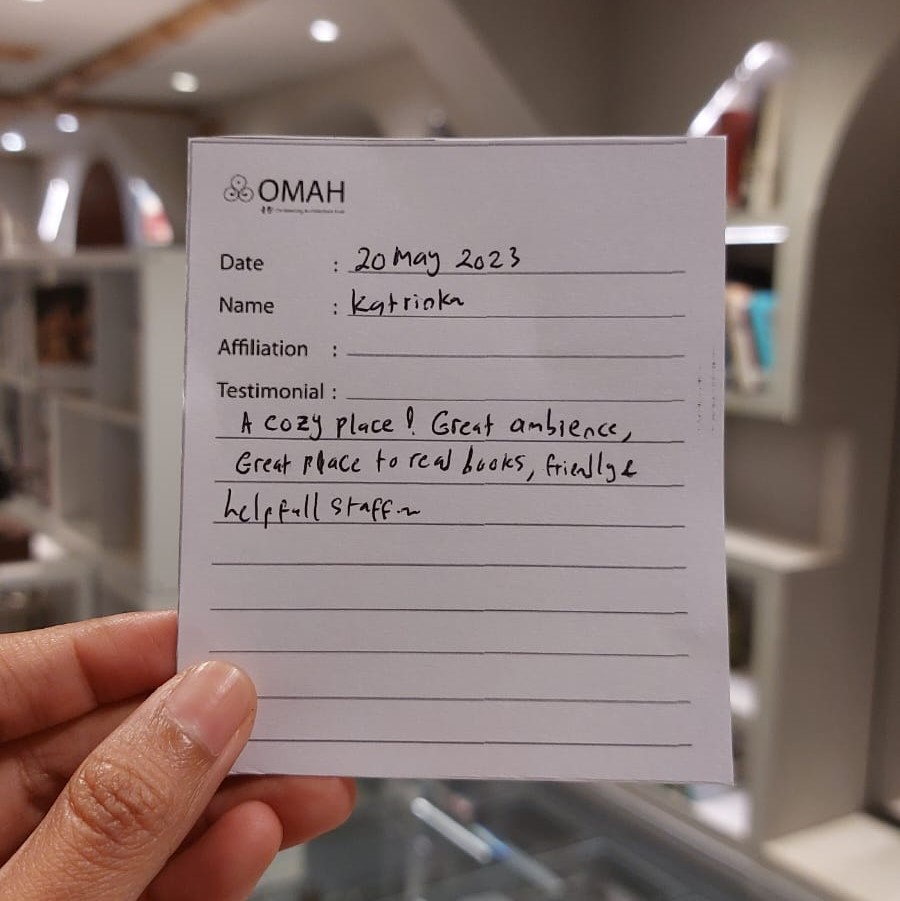 OMAH
Date : 20 May 2023
Name : Katrinka
Affiliation :
Testimonial :
A cozy place! Great ambience,
Great place to read books, friendly &
helpfull staff.